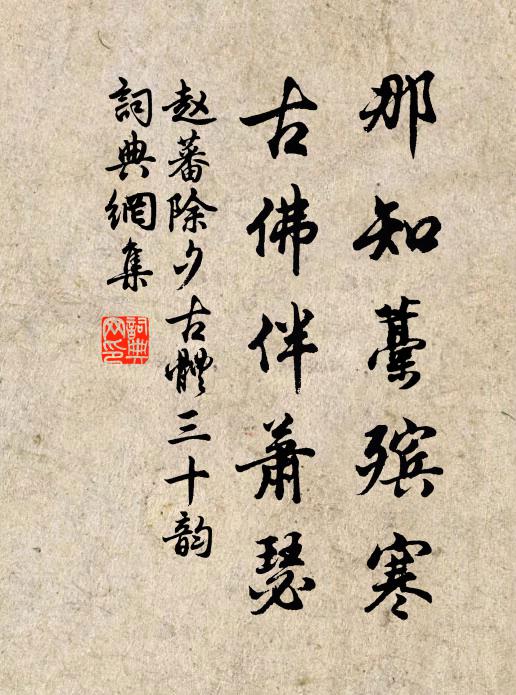 那知藁殡寒
古佛伴萧瑟
赵蕃除夕古體三十韵
詞典網集
詞典网印